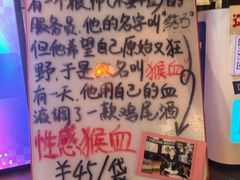 有一个很神
服务员,他的名字叫
但他希望自己原始又狂
野,于是 名叫猴血
有一天,他用自己的血
液调了一款鸡尾酒
性感猴血
¥45/袋